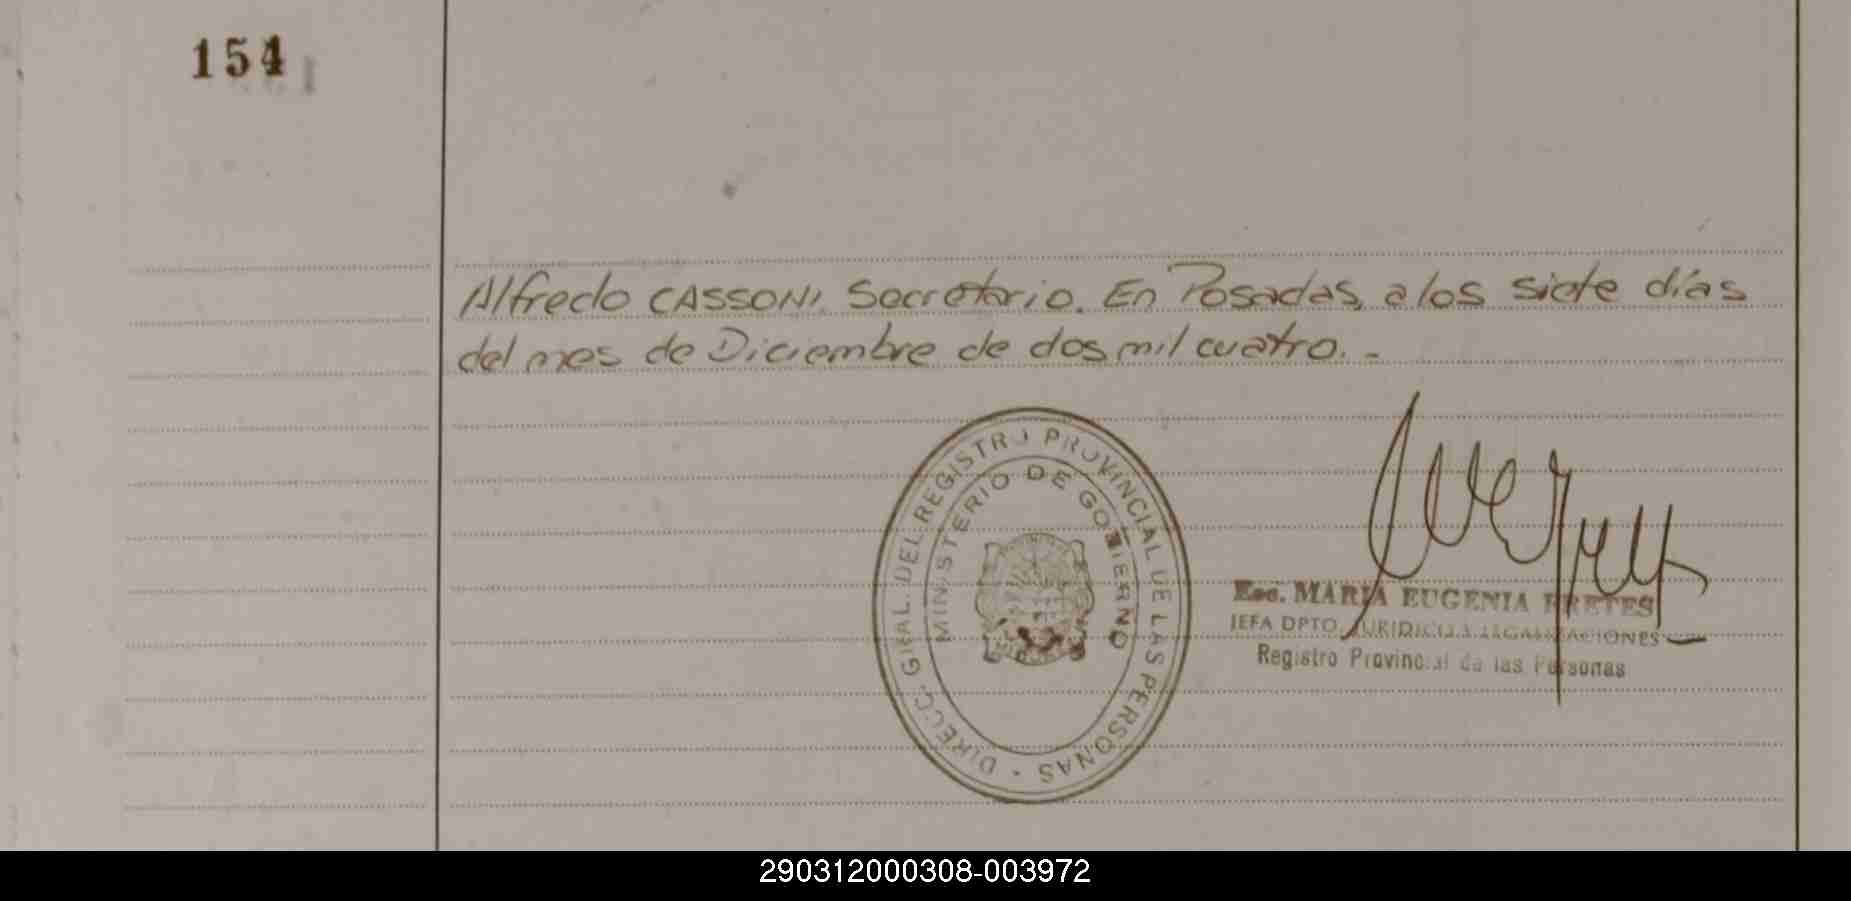 154
Alfredo CASSONI, Secretario. En Posadas, a los siete días
del mes de Diciembre de dos mil cuatro. -
DIRECC. GRAL. DEL REGISTRO PROVINCIAL DE LAS PERSONAS
MINISTERIO DE GOBIERNO
Esc. MARIA EUGENIA FRETES
JEFA DPTO. JURIDICO Y LEGALIZACIONES
Registro Provincial de las Personas
290312000308-003972